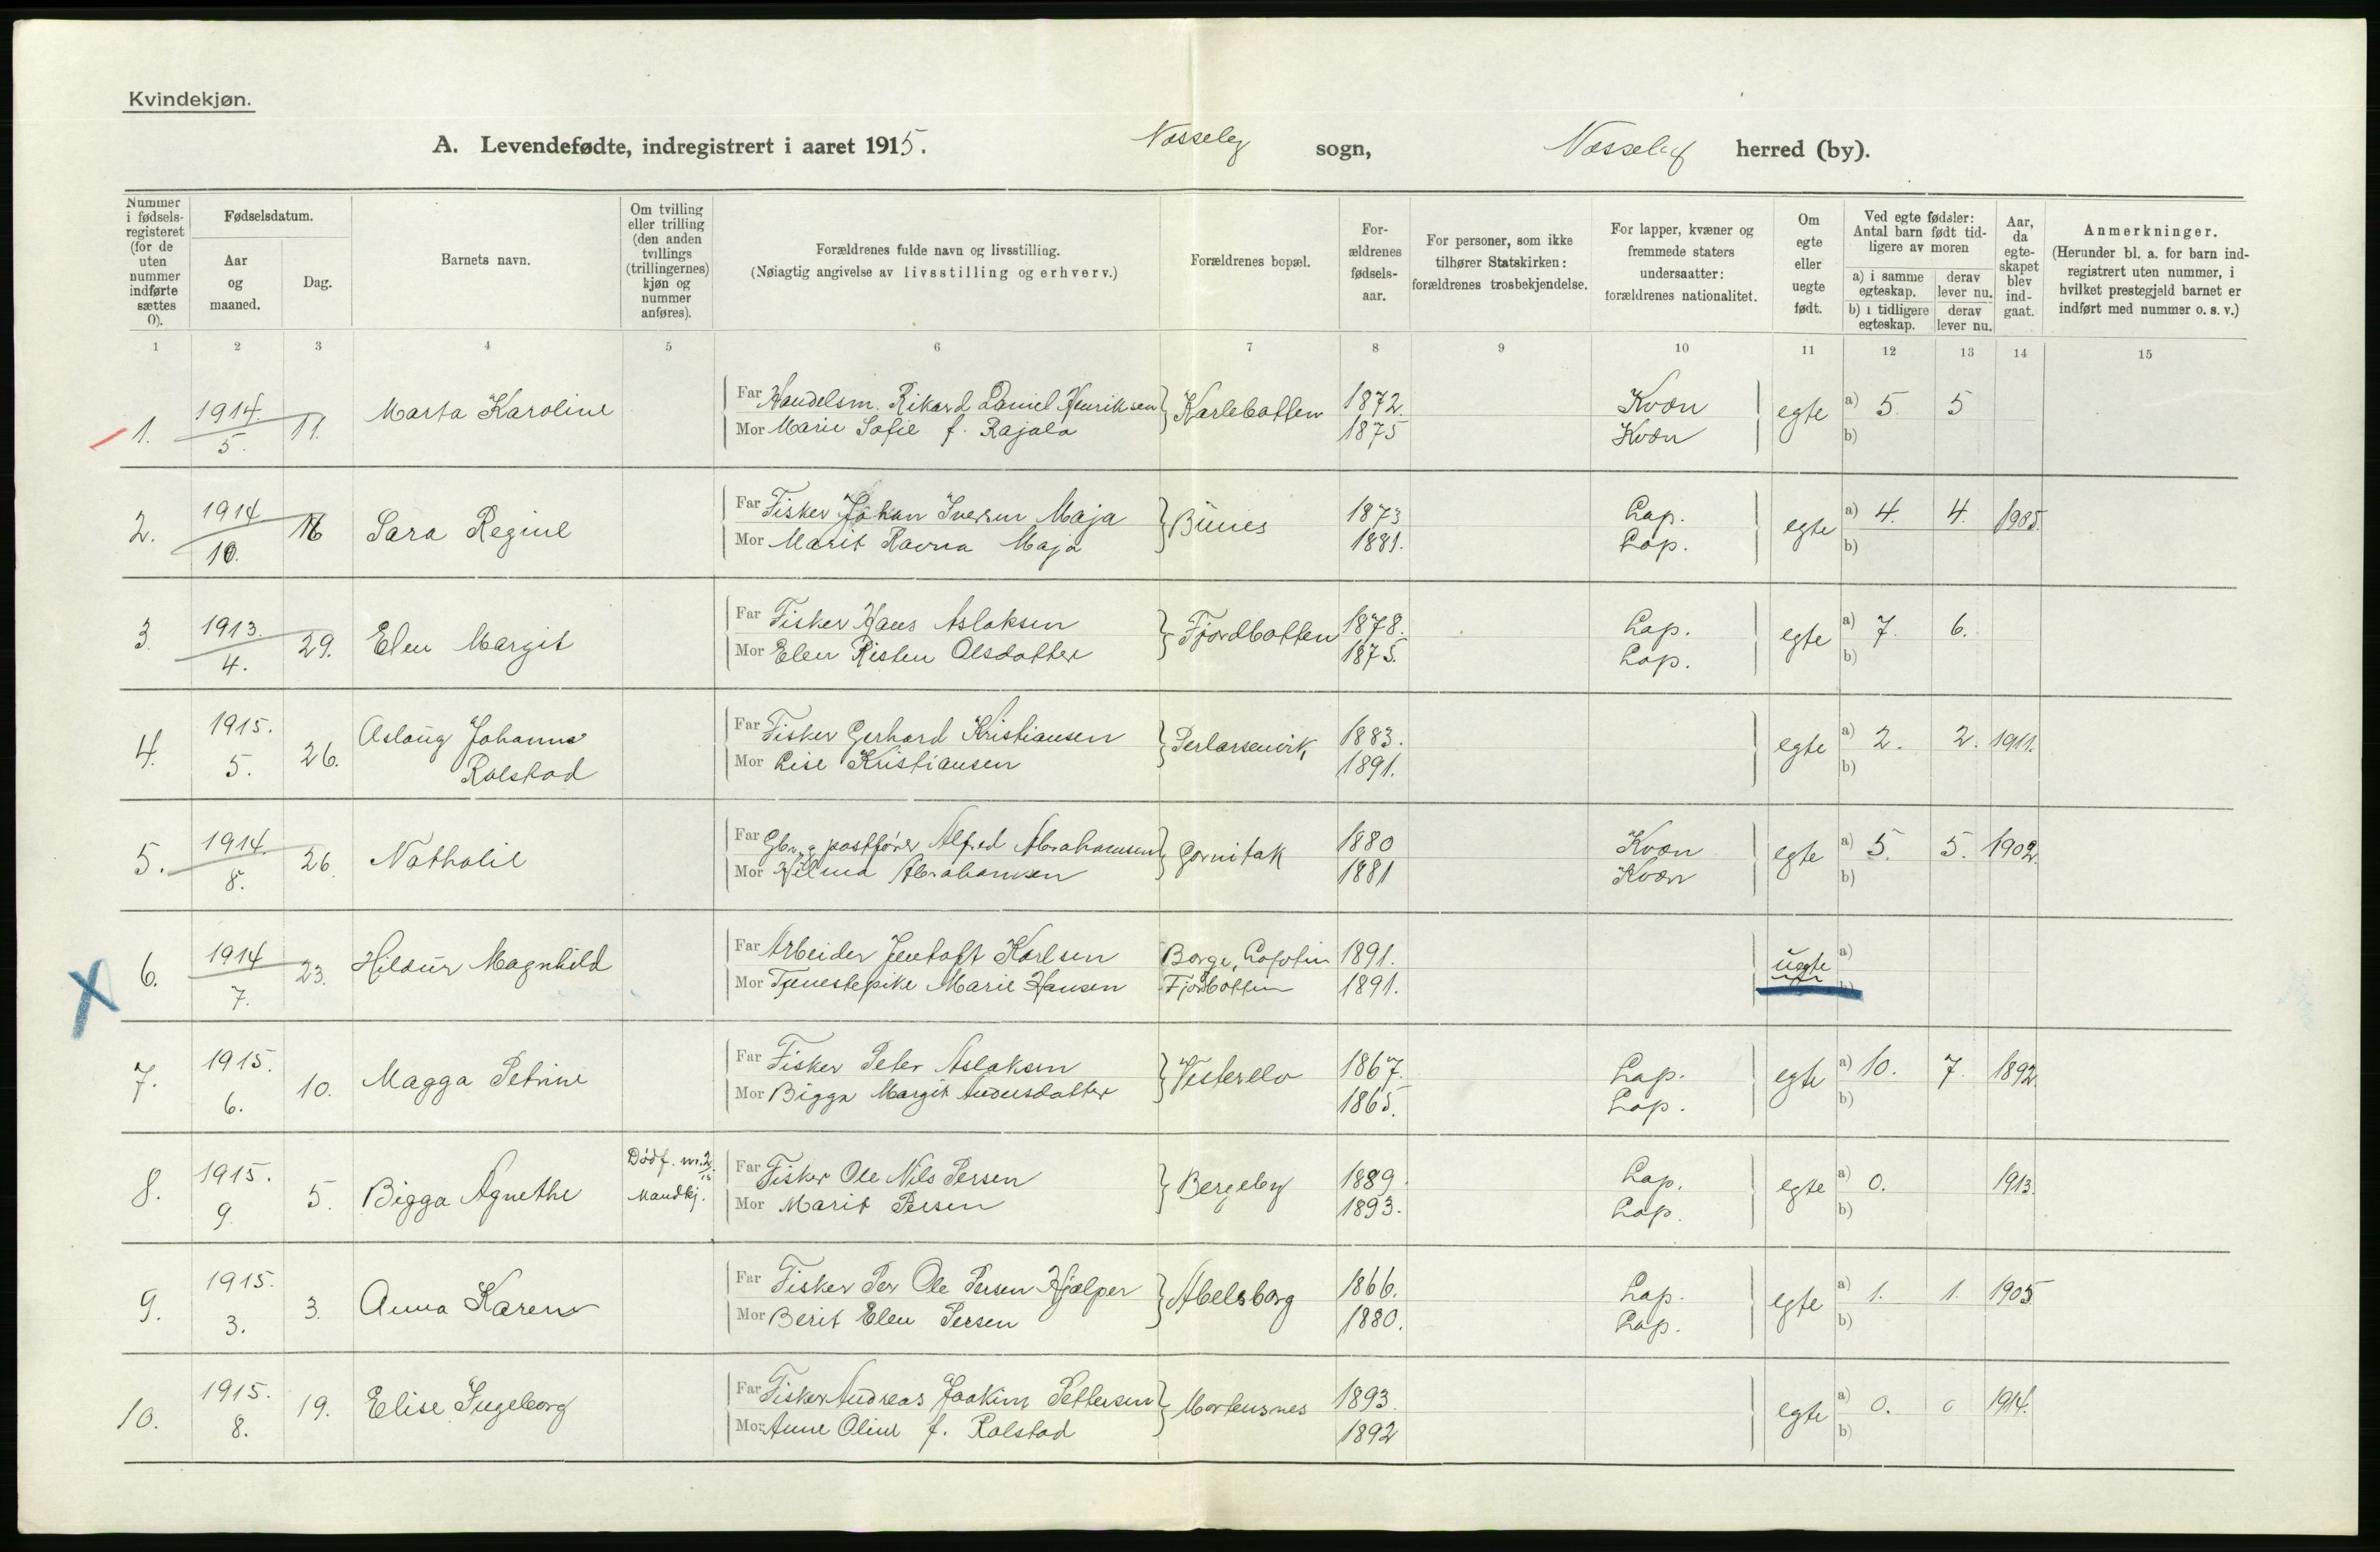 Kvindekjøn.
A. Levendefødte, indregistrert i aaret 1915. Nesseby sogn, Nesseby herred (by).
Nummer i fødsels-registeret (for de uten nummer indførte sættes 0).
Fødselsdatum.
Aar og maaned.
Dag.
Barnets navn.
Om tvilling eller trilling (den anden tvillings (trillingernes) kjøn og nummer anføres).
Forældrenes fulde navn og livsstilling.
(Nøiagtig angivelse av livsstilling og erhverv.)
Forældrenes bopæl.
For-ældrenes fødsels-aar.
For personer, som ikke tilhører Statskirken: forældrenes trosbekjendelse.
For lapper, kvæner og fremmede staters undersaatter: forældrenes nationalitet.
Om egte eller uegte født.
Ved egte fødsler: Antal barn født tid-ligere av moren
a) i samme egteskap. derav lever nu.
b) i tidligere egteskap. derav lever nu.
Aar, da egte-skapet blev ind-gaat.
Anmerkninger.
(Herunder bl. a. for barn ind-registrert uten nummer, i hvilket prestegjeld barnet er indført med nummer o. s. v.)
1 2 3 4 5 6 7 8 9 10 11 12 13 14 15
1. 1914. 5. 11. Marta Karoline Far Handelsm. Rikard Daniel Henriksen Karlebotten 1872. Kvæn egte a) 5. 5
Mor Marie Sofie f. Rajala 1875 Kvæn b)
2. 1914 10. 16 Sara Regine Far Fisker Johan Iversen Maja Bunes 1873 Lap. egte a) 4. 4. 1905.
Mor Marit Ravna Maja 1881. Lap. b)
3. 1913. 4. 29. Elen Margit Far Fisker Hans Aslaksen Fjordbotten 1878. Lap. egte a) 7. 6.
Mor Elen Risten Olsdatter 1875. Lap. b)
4. 1915. 5. 26. Aslaug Johanne Rolstad Far Fisker Gerhard Kristiansen Perlarsenvik 1883. egte a) 2. 2. 1911.
Mor Lise Kristiansen 1891. b)
5. 1914. 8. 26. Nathalie Far Gbr. og postfører Alfred Abrahamsen Gornitak 1880 Kvæn egte a) 5. 5. 1902.
Mor Hilma Abrahamsen 1881 Kvæn b)
6. 1914 7. 23. Hildur Magnhild Far Arbeider Jentoft Karlsen Borge, Lofoten 1891. uegte a)
Mor Tjenestepike Marie Hansen Fjordbotten 1891. b)
7. 1915. 6. 10. Magga Petrine Far Fisker Peter Aslaksen Vesterelv 1867. Lap. egte a) 10. 7. 1892.
Mor Bigga Margit Andersdatter 1865. Lap. b)
8. 1915. 9. 5. Bigga Agnethe Dødf. nr. 2/15 Mandkj. Far Fisker Ole Nils Persen Bergeby 1889. Lap. egte a) 0. 1913.
Mor Marit Persen 1893. Lap. b)
9. 1915. 3. 3. Anna Karen Far Fisker Per Ole Persen Hjælper Abelsborg 1866. Lap. egte a) 1. 1. 1905
Mor Berit Elen Persen 1880. Lap. b)
10. 1915. 8. 19. Elise Ingeborg Far Fisker Andreas Joakim Pettersen Mortensnes 1893. egte a) 0. 0 1914.
Mor Anne Oline f. Rolstad 1892 b)